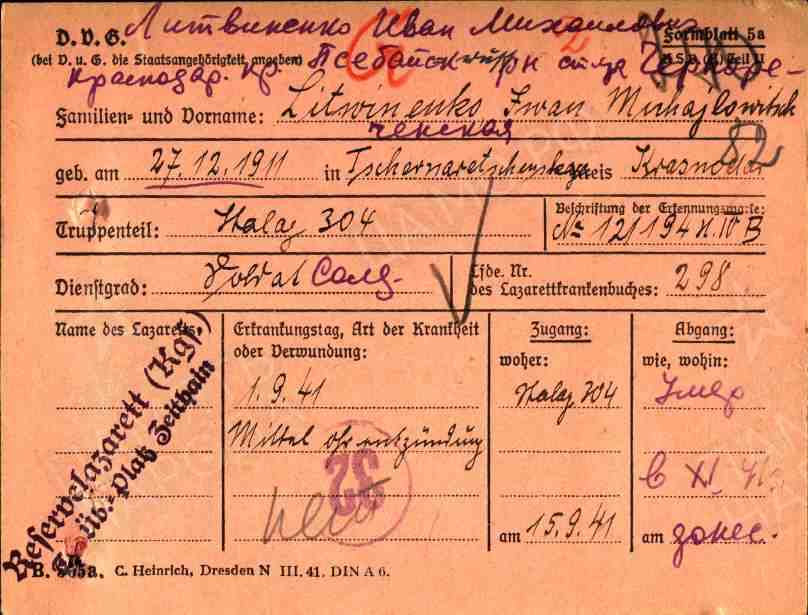 Литвиненко Иван Михайлович
D.V.G. Formblatt 5a
(bei D. u. G. die Staatsangehörigkeit angeben) Псебайск р-н ст-ца Черноре-
Краснодар. кр.
Familien- und Vorname: Litwinenko Iwan Michajlowitsch
ченская
82
geb. am 27.12.1911 in Kreis Krasnodar
Truppenteil: Stalag 304
Beschriftung der Erkennungsmarke:
№ 121194 IV B
Dienstgrad: Soldat Солд.
Lfde. Nr. des Lazarettkrankenbuches: 298
Name des Lazaretts:
Erkrankungstag, Art der Krankheit oder Verwundung:
Zugang: woher:
Abgang: wie, wohin:
1.9.41
Stalag 304
Умер
Mittelohrentzündung
в XI. 41.
32
am 15.9.41
am донес.
Reservelazarett (Kgf.)
Üb.-Platz Zeithain
C. Heinrich, Dresden N III. 41. DIN A 6.